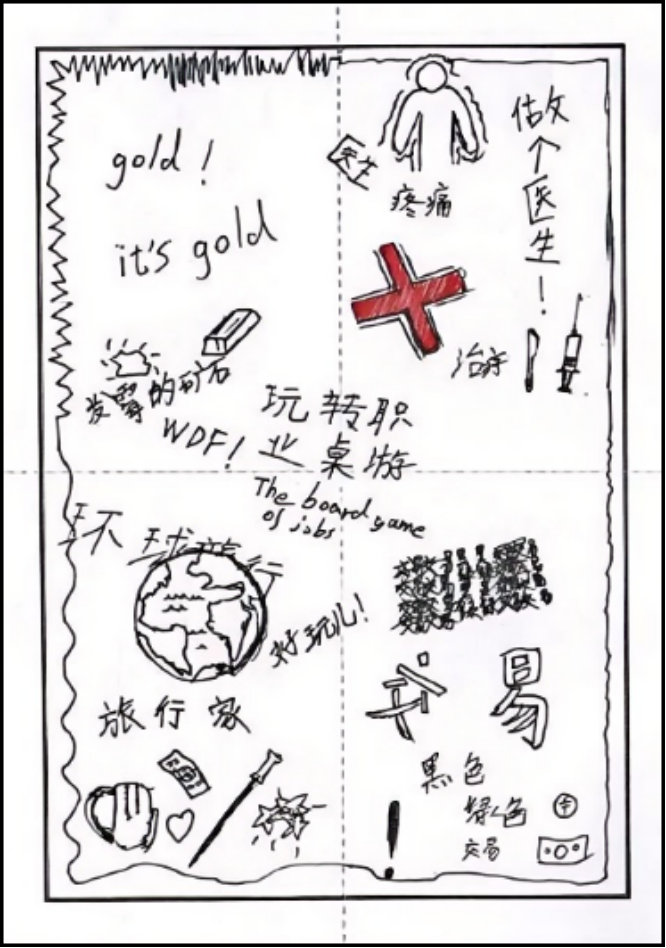 gold!
it's gold
发霉的矿石
WDF!
医生
疼痛
做个医生!
治疗
玩转职
业桌游
The board game
of jobs
环球旅行
好玩儿!
旅行家
交易
黑色
绿色
交易